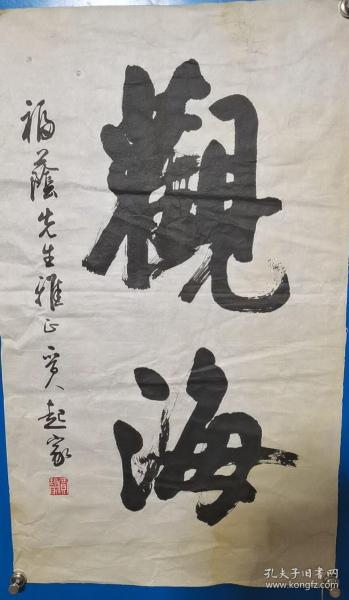 觀海
福蔭先生雅正 賈起家
孔夫子旧书网
www.kongfz.com